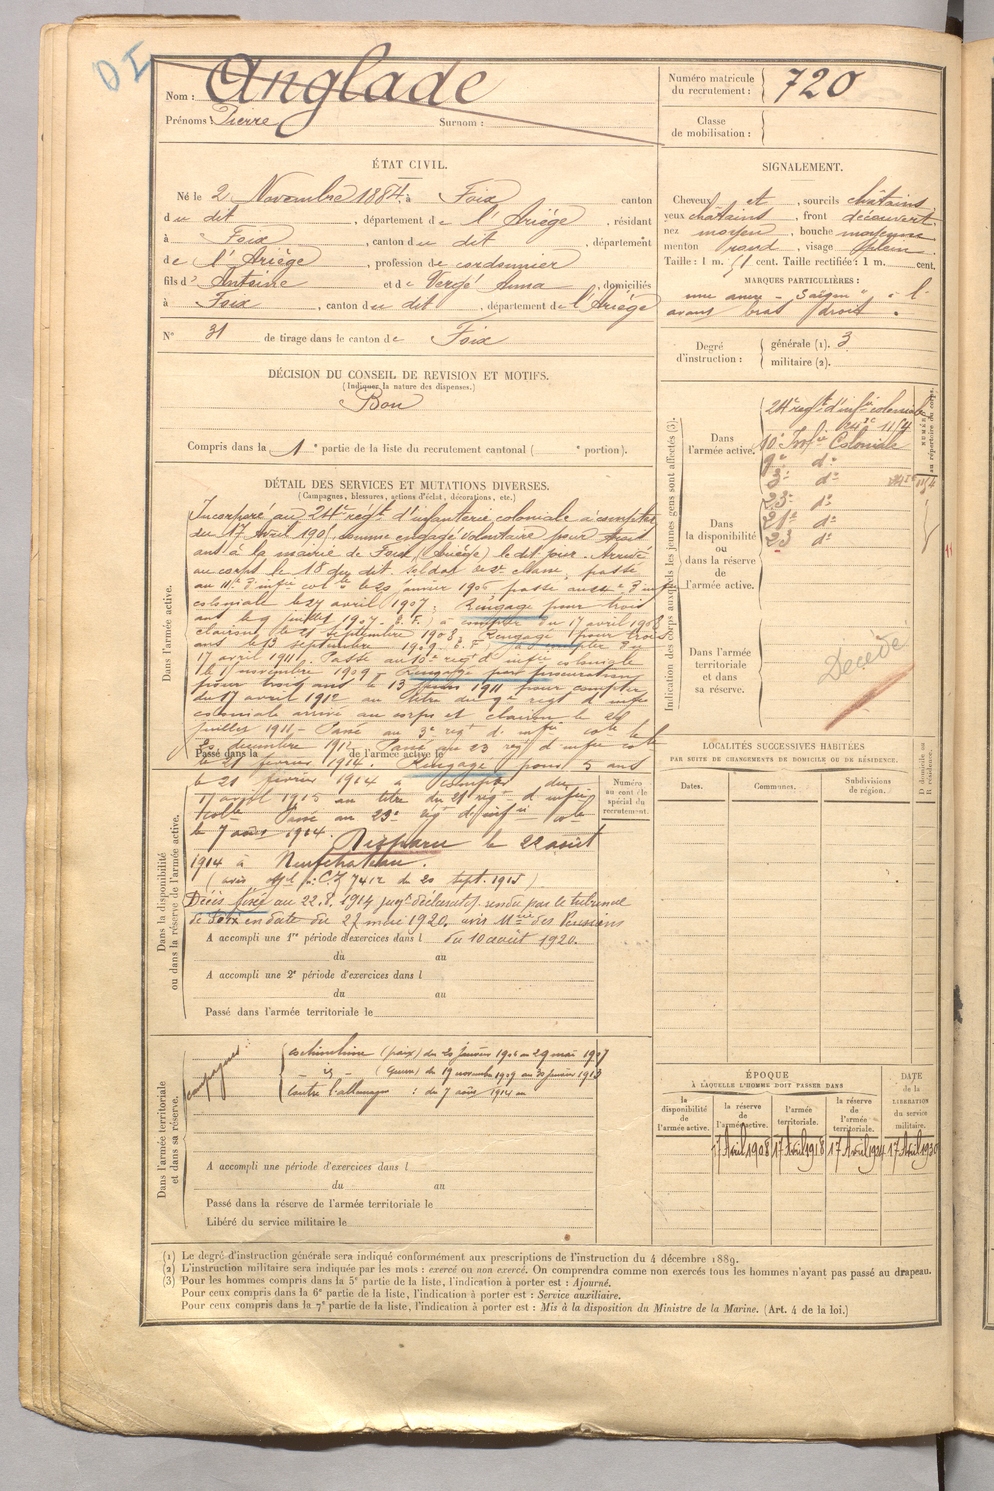 DI
Nom : Anglade
Prénoms : Pierre Surnom :
Numéro matricule du recrutement : 720
Classe de mobilisation :
ÉTAT CIVIL.
Né le 2 Novembre 1884, à Foix canton
du dit, département de l'Ariège, résidant
à Foix, canton du dit, département
de l'Ariège, profession de cordonnier
fils d'Antoine et de Vergé Anna, domiciliés
à Foix, canton du dit, département de l'Ariège
N° 31 de tirage dans le canton de Foix
SIGNALEMENT.
Cheveux et, sourcils châtains
yeux châtains, front découvert
nez moyen, bouche moyenne
menton rond, visage plein
Taille : 1 m. 61 cent. Taille rectifiée : 1 m. cent.
MARQUES PARTICULIÈRES :
une ancre - Saïgon " à l'
avant bras droit.
Degré d'instruction : générale (1). 3
militaire (2).
DÉCISION DU CONSEIL DE REVISION ET MOTIFS.
(Indiquer la nature des dispenses.)
Bon
Compris dans la 1e partie de la liste du recrutement cantonal ( e portion).
DÉTAIL DES SERVICES ET MUTATIONS DIVERSES.
(Campagnes, blessures, actions d'éclat, décorations, etc.)
Dans l'armée active.
Incorporé au 24e régt d'infanterie coloniale à compter
du 17 Avril 190, comme engagé volontaire pour
ans à la mairie de Foix (Ariège) le dit jour. Arrivé
au corps le 18 du dit. Soldat de 2e classe, passé
au 11e d'infie colle le 20 janvier 1906 passé au 3e d'infie
coloniale le 27 avril 1907. Rengagé pour trois
ans le 9 juillet 1907 à compter du 17 avril 1908
clairon le 21 septembre 1908. Rengagé pour trois
ans le 13 septembre 1909 à compter du
17 avril 1911. Passé au 10e régt d'infie coloniale
le 1 novembre 1909 Rengagé par procuration
pour trois ans le 13 1911 pour compter
du 17 avril 1912 au titre du 9e régt d'infie
coloniale arrivé au corps et clairon le 24
juillet 1911 - Passé au 3e régt d'infie cole le
20 décembre 1912 Passé au 23 régt d'infie cole
Passé dans la de l'armée active le
le 21 février 1914. Rengagé pour 5 ans
Dans la disponibilité ou dans la réserve de l'armée active.
Numéro au contrôle spécial du recrutement.
le 21 février 1914 à compter du
17 avril 1915 au titre du 21 régt d'infie
colle Passé au 23e régt d'infie cole
le 7 août 1914. Disparu le 22 août
1914 à Neufchateau.
(avis offel p. CZ 7412 du 20 sept. 1915)
Décès fixé au 22.8.1914 jugt déclaratif rendu par le tribunal
de Foix en date du 27 mai 1920. avis Mtre des Pensions
A accompli une 1re période d'exercices dans l du 10 août 1920.
du au
A accompli une 2e période d'exercices dans l
du au
Passé dans l'armée territoriale le
Dans l'armée territoriale et dans sa réserve.
Campagnes
Cochinchine (paix) du 20 janvier 1906 au 29 mai 1907
- id - (Guerre) du 19 novembre 1909 au 30 janvier 1913
Contre l'allemagne : du 7 août 1914 au
A accompli une période d'exercices dans l
du au
Passé dans la réserve de l'armée territoriale le
Libéré du service militaire le
Indication des corps auxquels les jeunes gens sont affectés (3).
Dans l'armée active.
24e régt d'infie coloniale
10e Infie Coloniale
9e do
3e do
23e do
21e do
23 do
NUMÉRO au répertoire du corps.
Dans la disponibilité ou dans la réserve de l'armée active.
Dans l'armée territoriale et dans sa réserve.
Décédé
LOCALITÉS SUCCESSIVES HABITÉES
PAR SUITE DE CHANGEMENTS DE DOMICILE OU DE RÉSIDENCE.
Dates. Communes. Subdivisions de région. D domicile ou R résidence.
ÉPOQUE
À LAQUELLE L'HOMME DOIT PASSER DANS
la disponibilité de l'armée active. la réserve de l'armée active. l'armée territoriale. la réserve de l'armée territoriale. DATE de la LIBÉRATION du service militaire.
17 Avril 1908 17 Avril 1918 17 Avril 1924 17 Avril 1930
(1) Le degré d'instruction générale sera indiqué conformément aux prescriptions de l'instruction du 4 décembre 1889.
(2) L'instruction militaire sera indiquée par les mots : exercé ou non exercé. On comprendra comme non exercés tous les hommes n'ayant pas passé au drapeau.
(3) Pour les hommes compris dans la 5e partie de la liste, l'indication à porter est : Ajourné.
Pour ceux compris dans la 6e partie de la liste, l'indication à porter est : Service auxiliaire.
Pour ceux compris dans la 7e partie de la liste, l'indication à porter est : Mis à la disposition du Ministre de la Marine. (Art. 4 de la loi.)